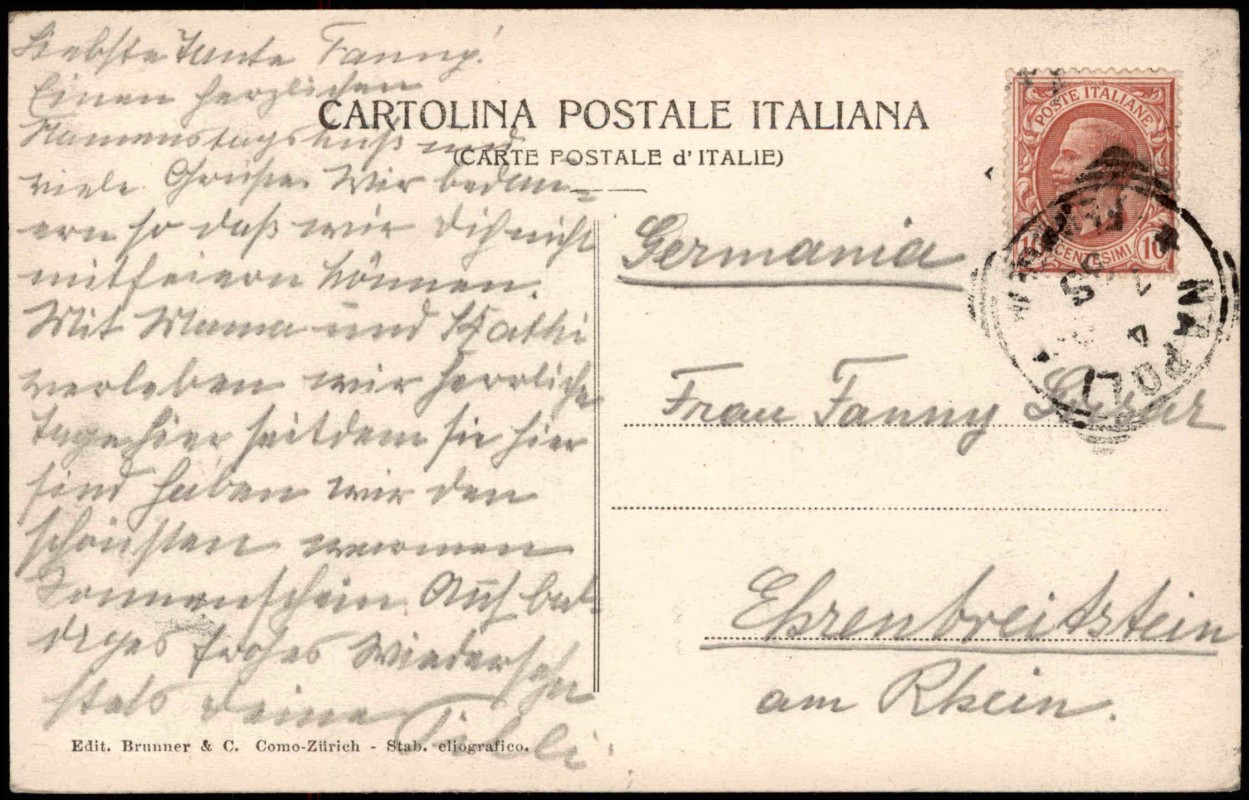 Liebste Tante Fanny!
Einen herzlichen
Namenstagskuß und
viele Grüße. Wir bedau-
ern so daß wir Dich nicht
mitfeiern können.
Mit Mama und Kathi
verleben wir herrliche
Tage hier seitdem sie hier
sind haben wir den
schönsten warmen
Sonnenschein. Auf bal-
diges frohes Wiedersehn
stets Deine
Tilli.
CARTOLINA POSTALE ITALIANA
(CARTE POSTALE d'ITALIE)
POSTE ITALIANE
10 CENTESIMI 10
NAPOLI
Germania
Frau Fanny
Ehrenbreitstein
am Rhein.
Edit. Brunner & C. Como-Zürich - Stab. eliografico.